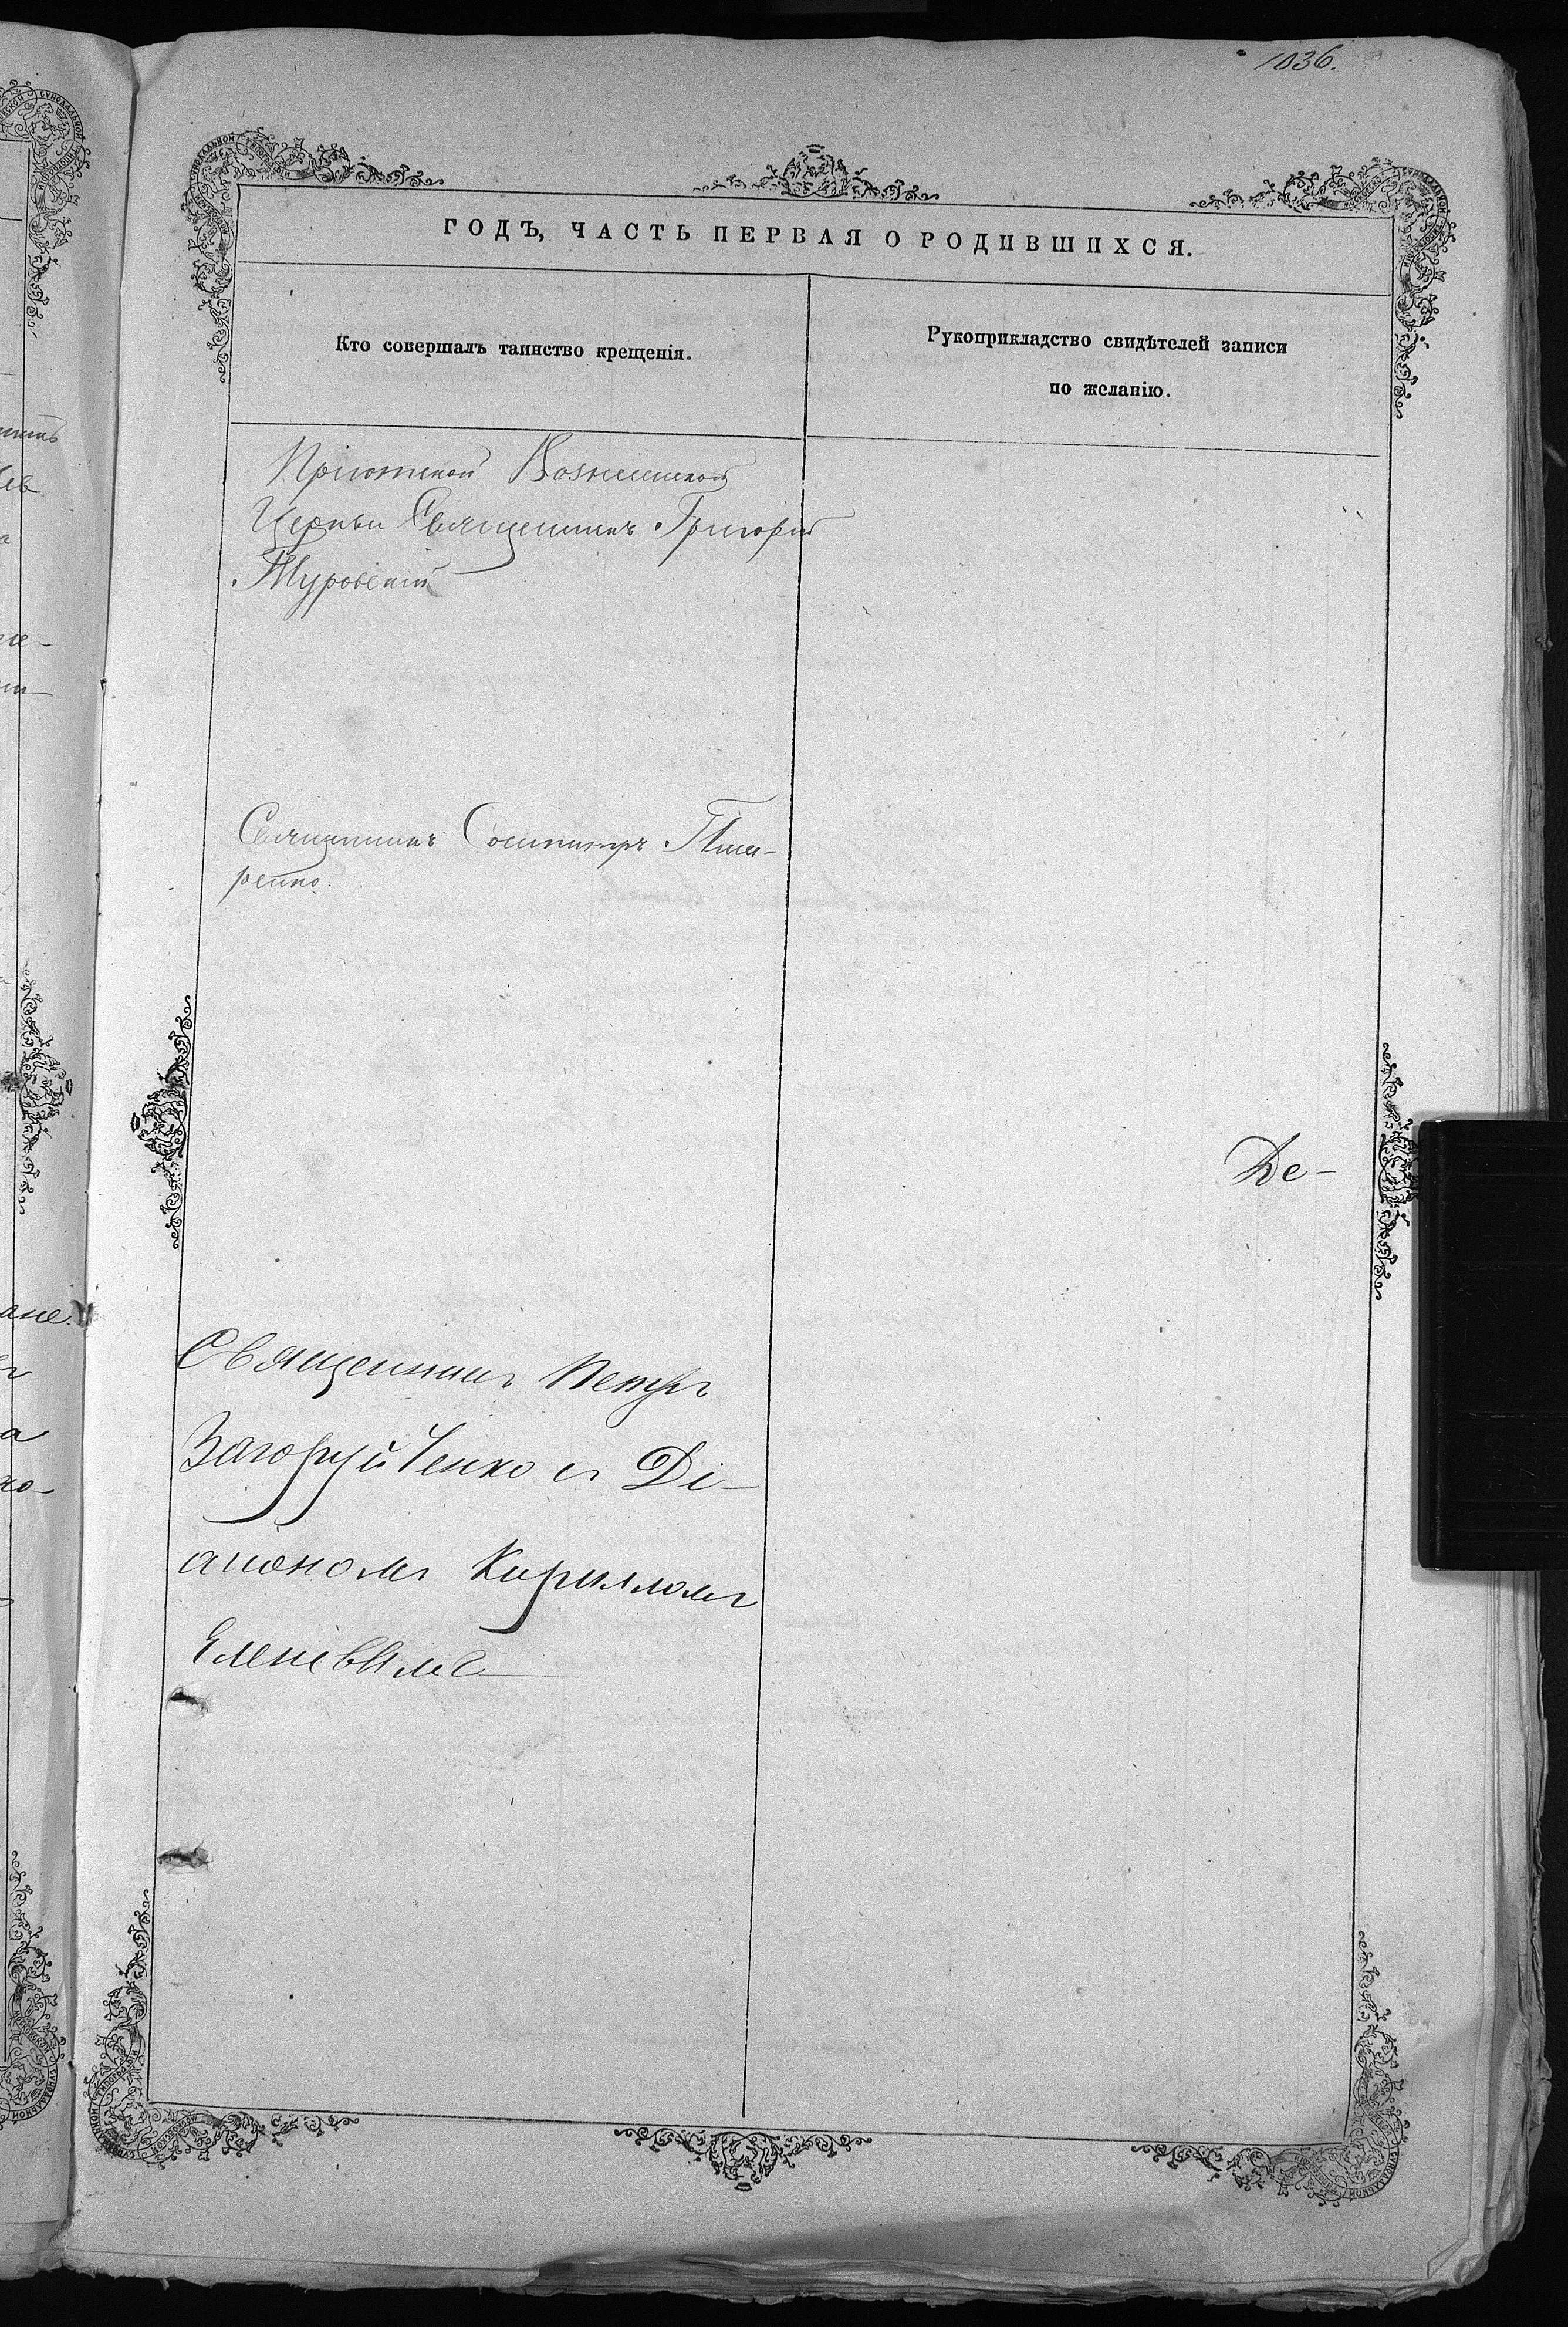 1036.
ГОДЪ, ЧАСТЬ ПЕРВАЯ О РОДИВШИХСЯ.
Кто совершалъ таинство крещенія.
Рукоприкладство свидѣтелей записи
по желанію.
Пріютской Вознесенской
Церкви Священникъ Григорій
Туровскій
Священникъ Сосипатръ Пика-
ренко.
Де-
Священникъ Петръ
Загоруйченко съ Ді-
акономъ Кирилломъ